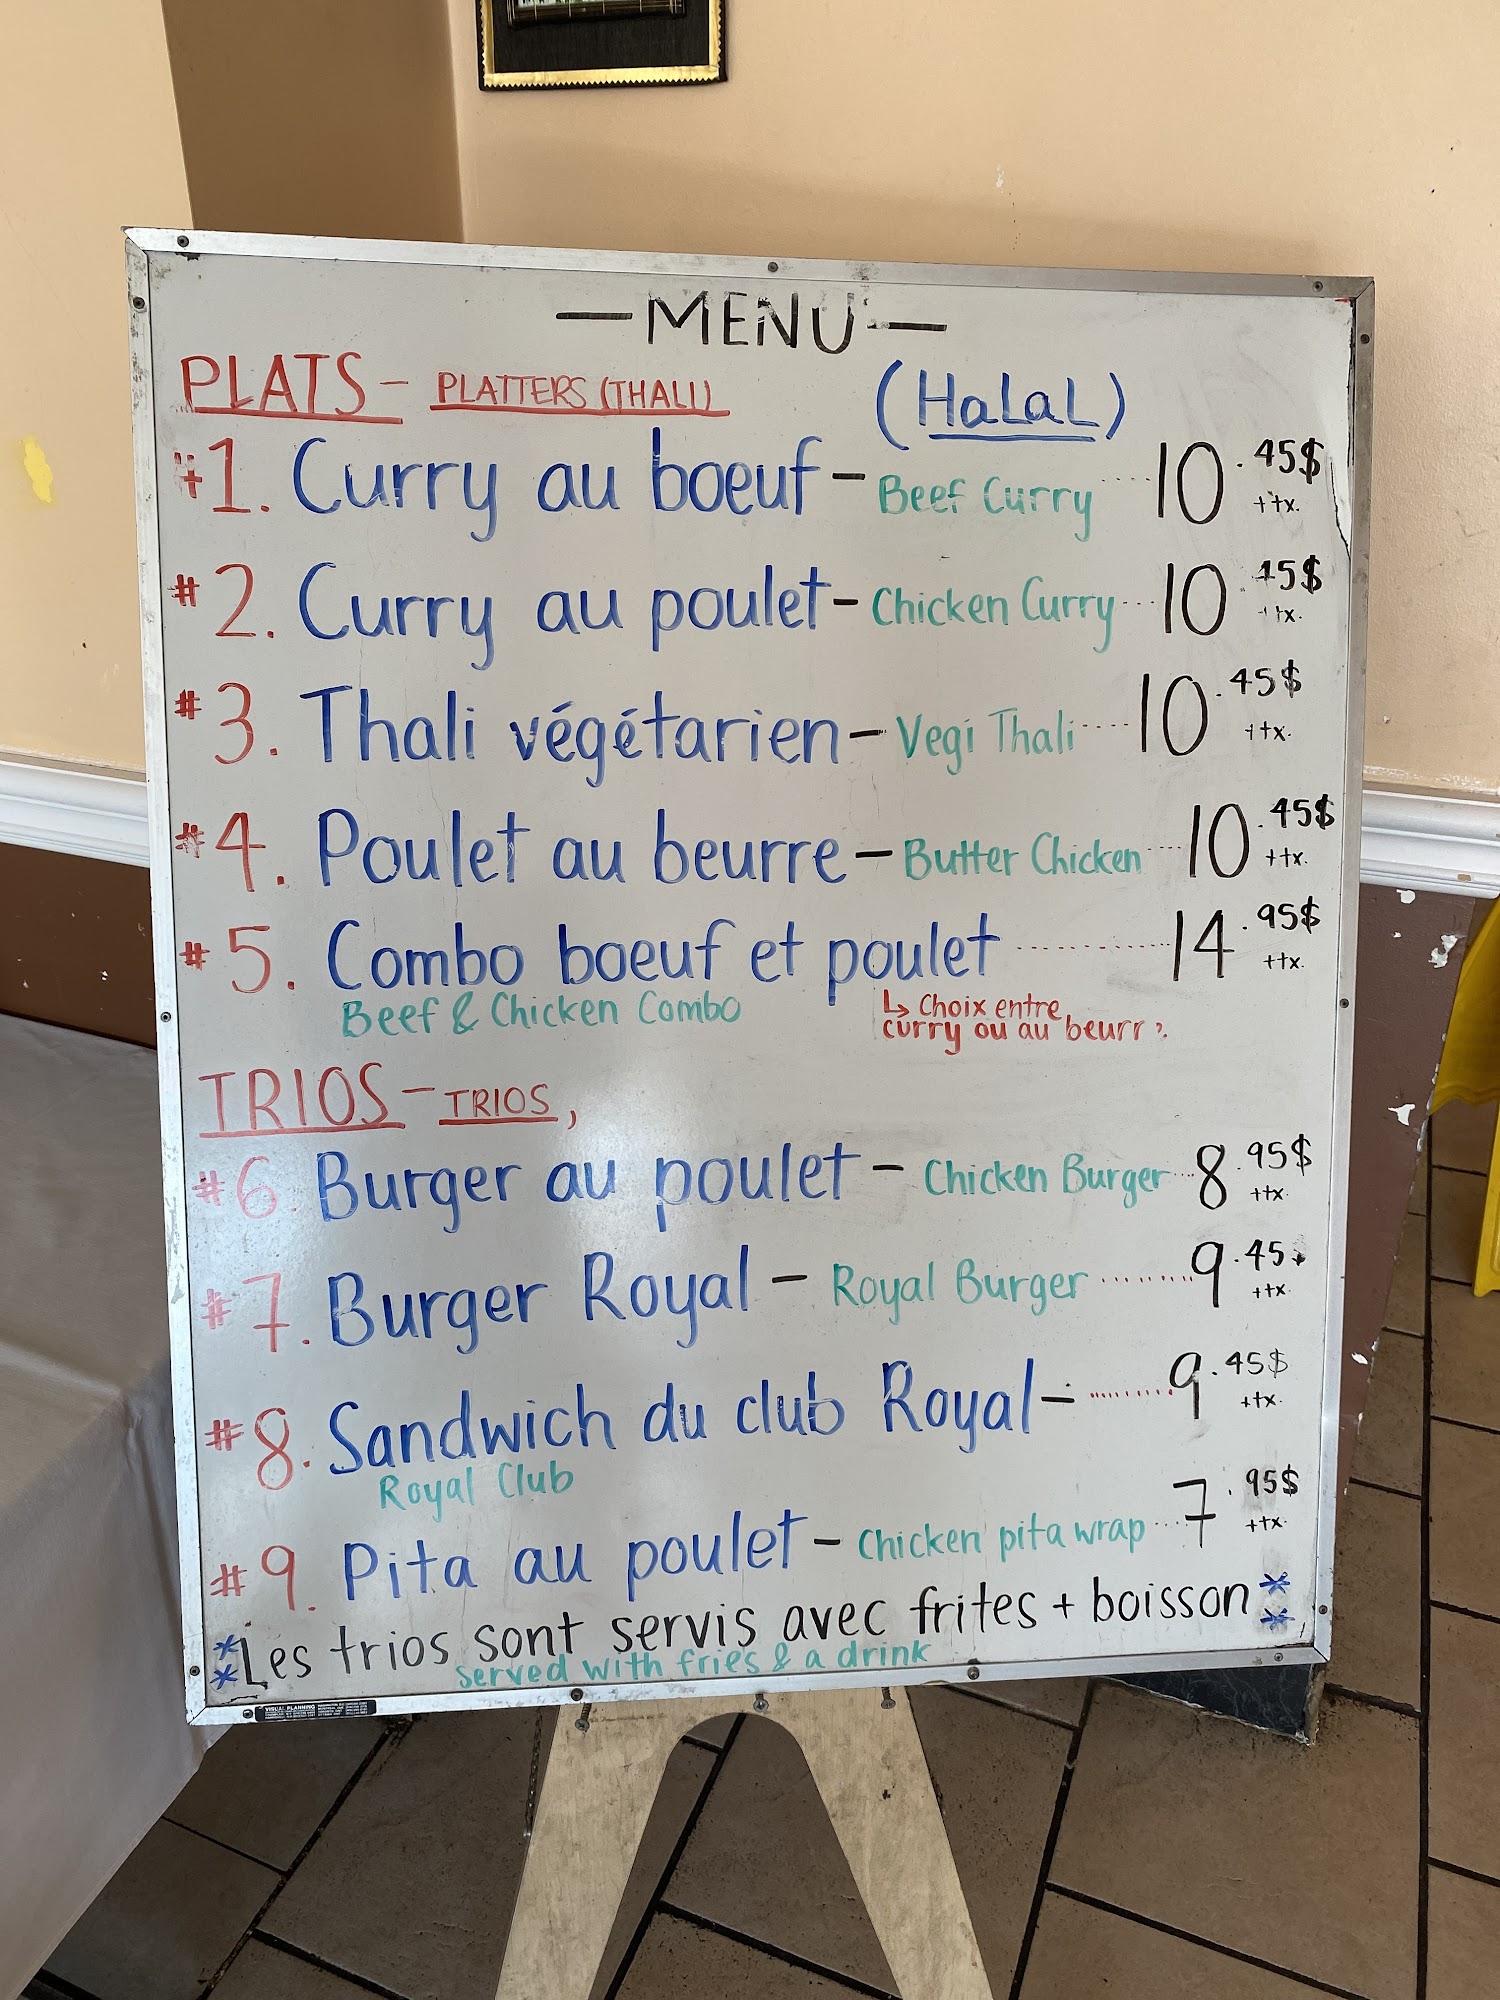 —MENU—
PLATS - PLATTERS (THALI) (HALAL)
#1. Curry au boeuf - Beef Curry 10.45$ + tx.
#2. Curry au poulet - Chicken Curry 10.45$ + tx.
#3. Thali végétarien - Vegi Thali 10.45$ + tx.
#4. Poulet au beurre - Butter Chicken 10.45$ + tx.
#5. Combo boeuf et poulet 14.95$ + tx.
Beef & Chicken Combo ↳ Choix entre
curry ou au beurr
TRIOS - TRIOS,
#6. Burger au poulet - Chicken Burger 8.95$ + tx.
#7. Burger Royal - Royal Burger 9.45 + tx.
#8. Sandwich du club Royal - 9.45$ + tx.
Royal Club
#9. Pita au poulet - Chicken pita wrap 7.95$ + tx.
** Les trios sont servis avec frites + boisson **
served with fries & a drink
VISUAL PLANNING